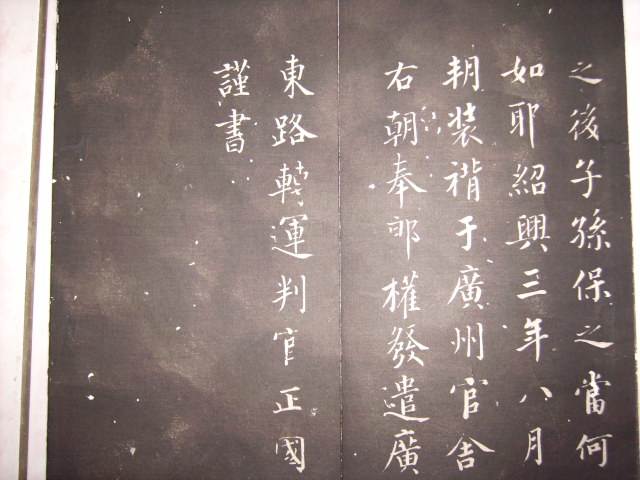 之後子孫保之當何
如耶紹興三年八月
朔装褙于廣州官舍
右朝奉郎權發遣廣
東路轉運判官正國
謹書